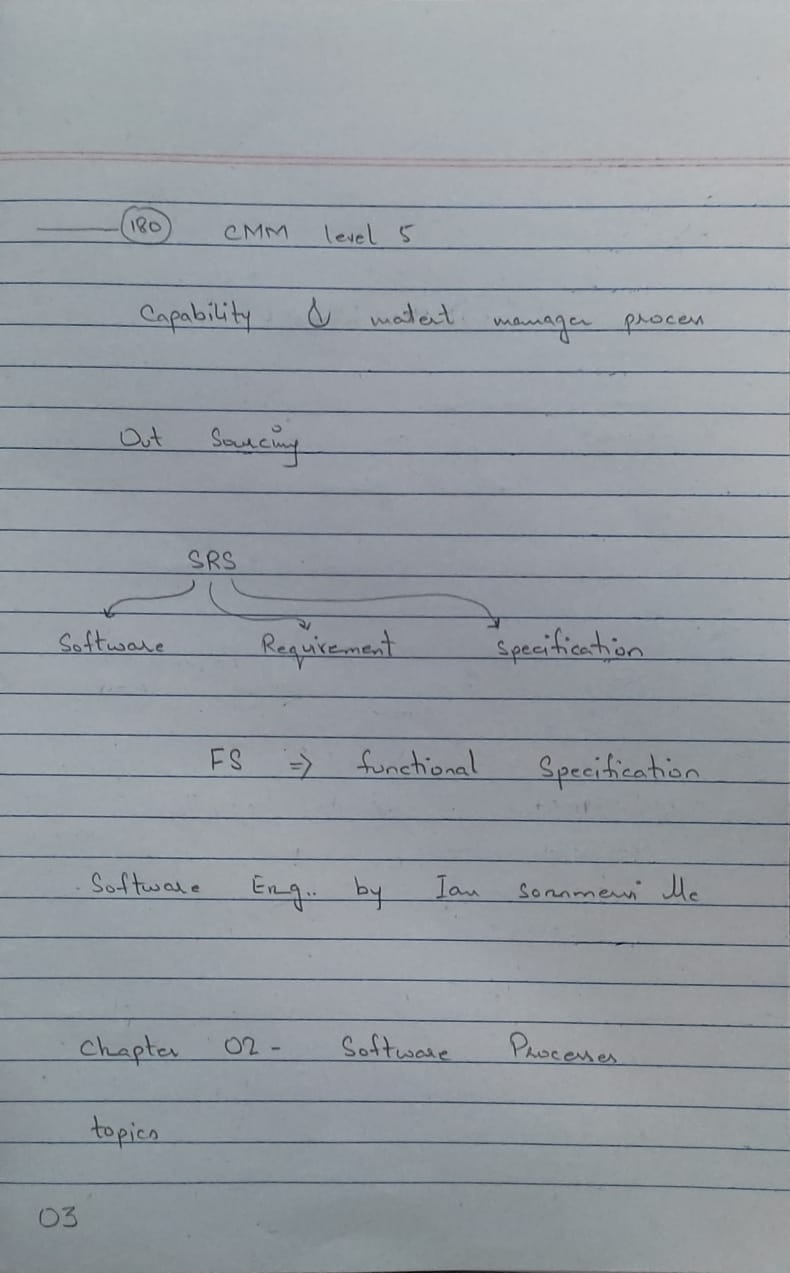 180 CMM level 5
Capability & matert manager process
Out Sourcing
SRS
Software Requirement Specification
FS => functional Specification
Software Eng.. by Ian
Chapter 02 - Software Processes
topics
03